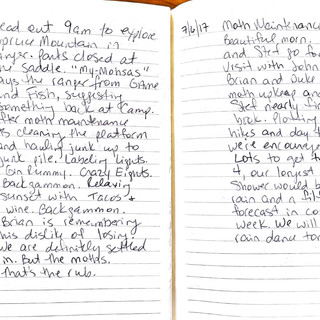 ead out 9am to explore
pruce Mountain in
anger. Pants closed at
he saddle. "My Mohsas"
ays the ranger from Game
and Fish, suggesting
something back at Camp.
fter moth maintenance
is cleaning the platform
and hauling junk up to
junk pile. Labeling lights.
Gin Rummy. Crazy Eights.
Backgammon. Relaxing
sunset with Tacos &
wine. Backgammon.
Brian is remembering
his dislike of losing.
We are definitely settled
in. But the moths.
That's the rub.
7/6/17 Moth Maintenance
Beautiful morn.
and Stef go for
visit with John
Brian and Juke
moth upkeep and
Stef nearly fin
brok. Plotting
hikes and day t
were encourage
Lots to get t
4, our longest
Shower would b
rain and a
forecast in co
week. We will
rain dance ton